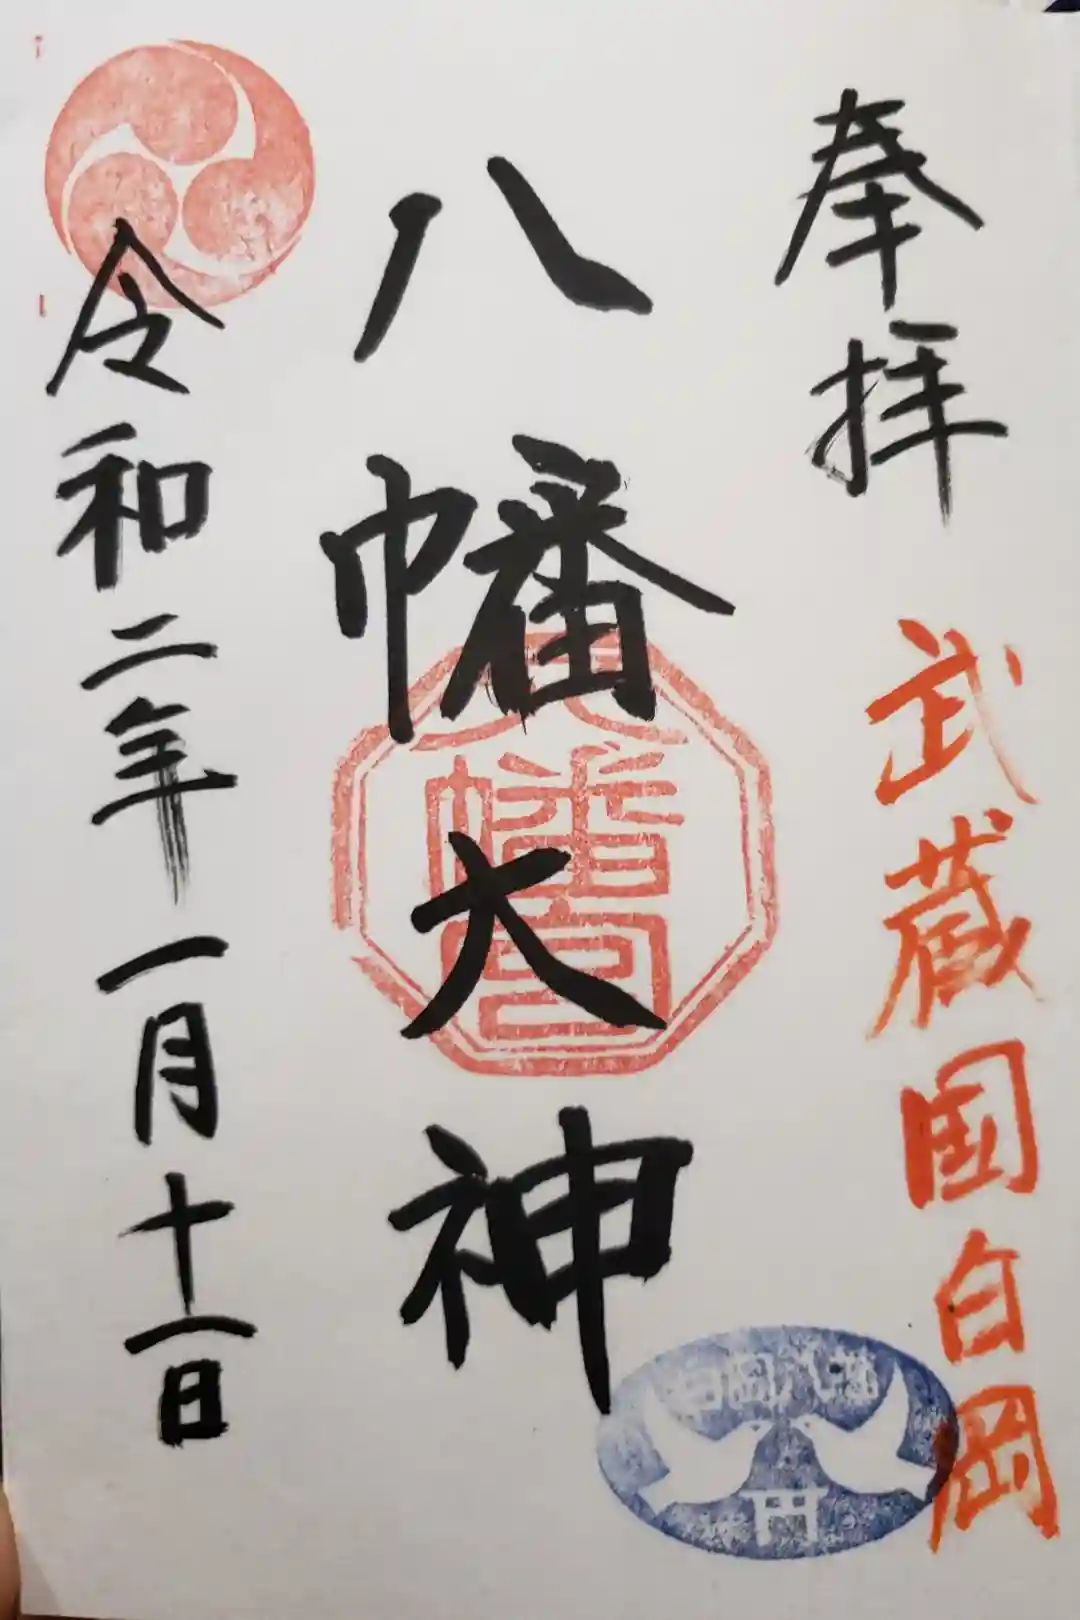 奉拝
武蔵国白岡
八幡大神
八幡宮
令和二年一月十一日
白岡八幡